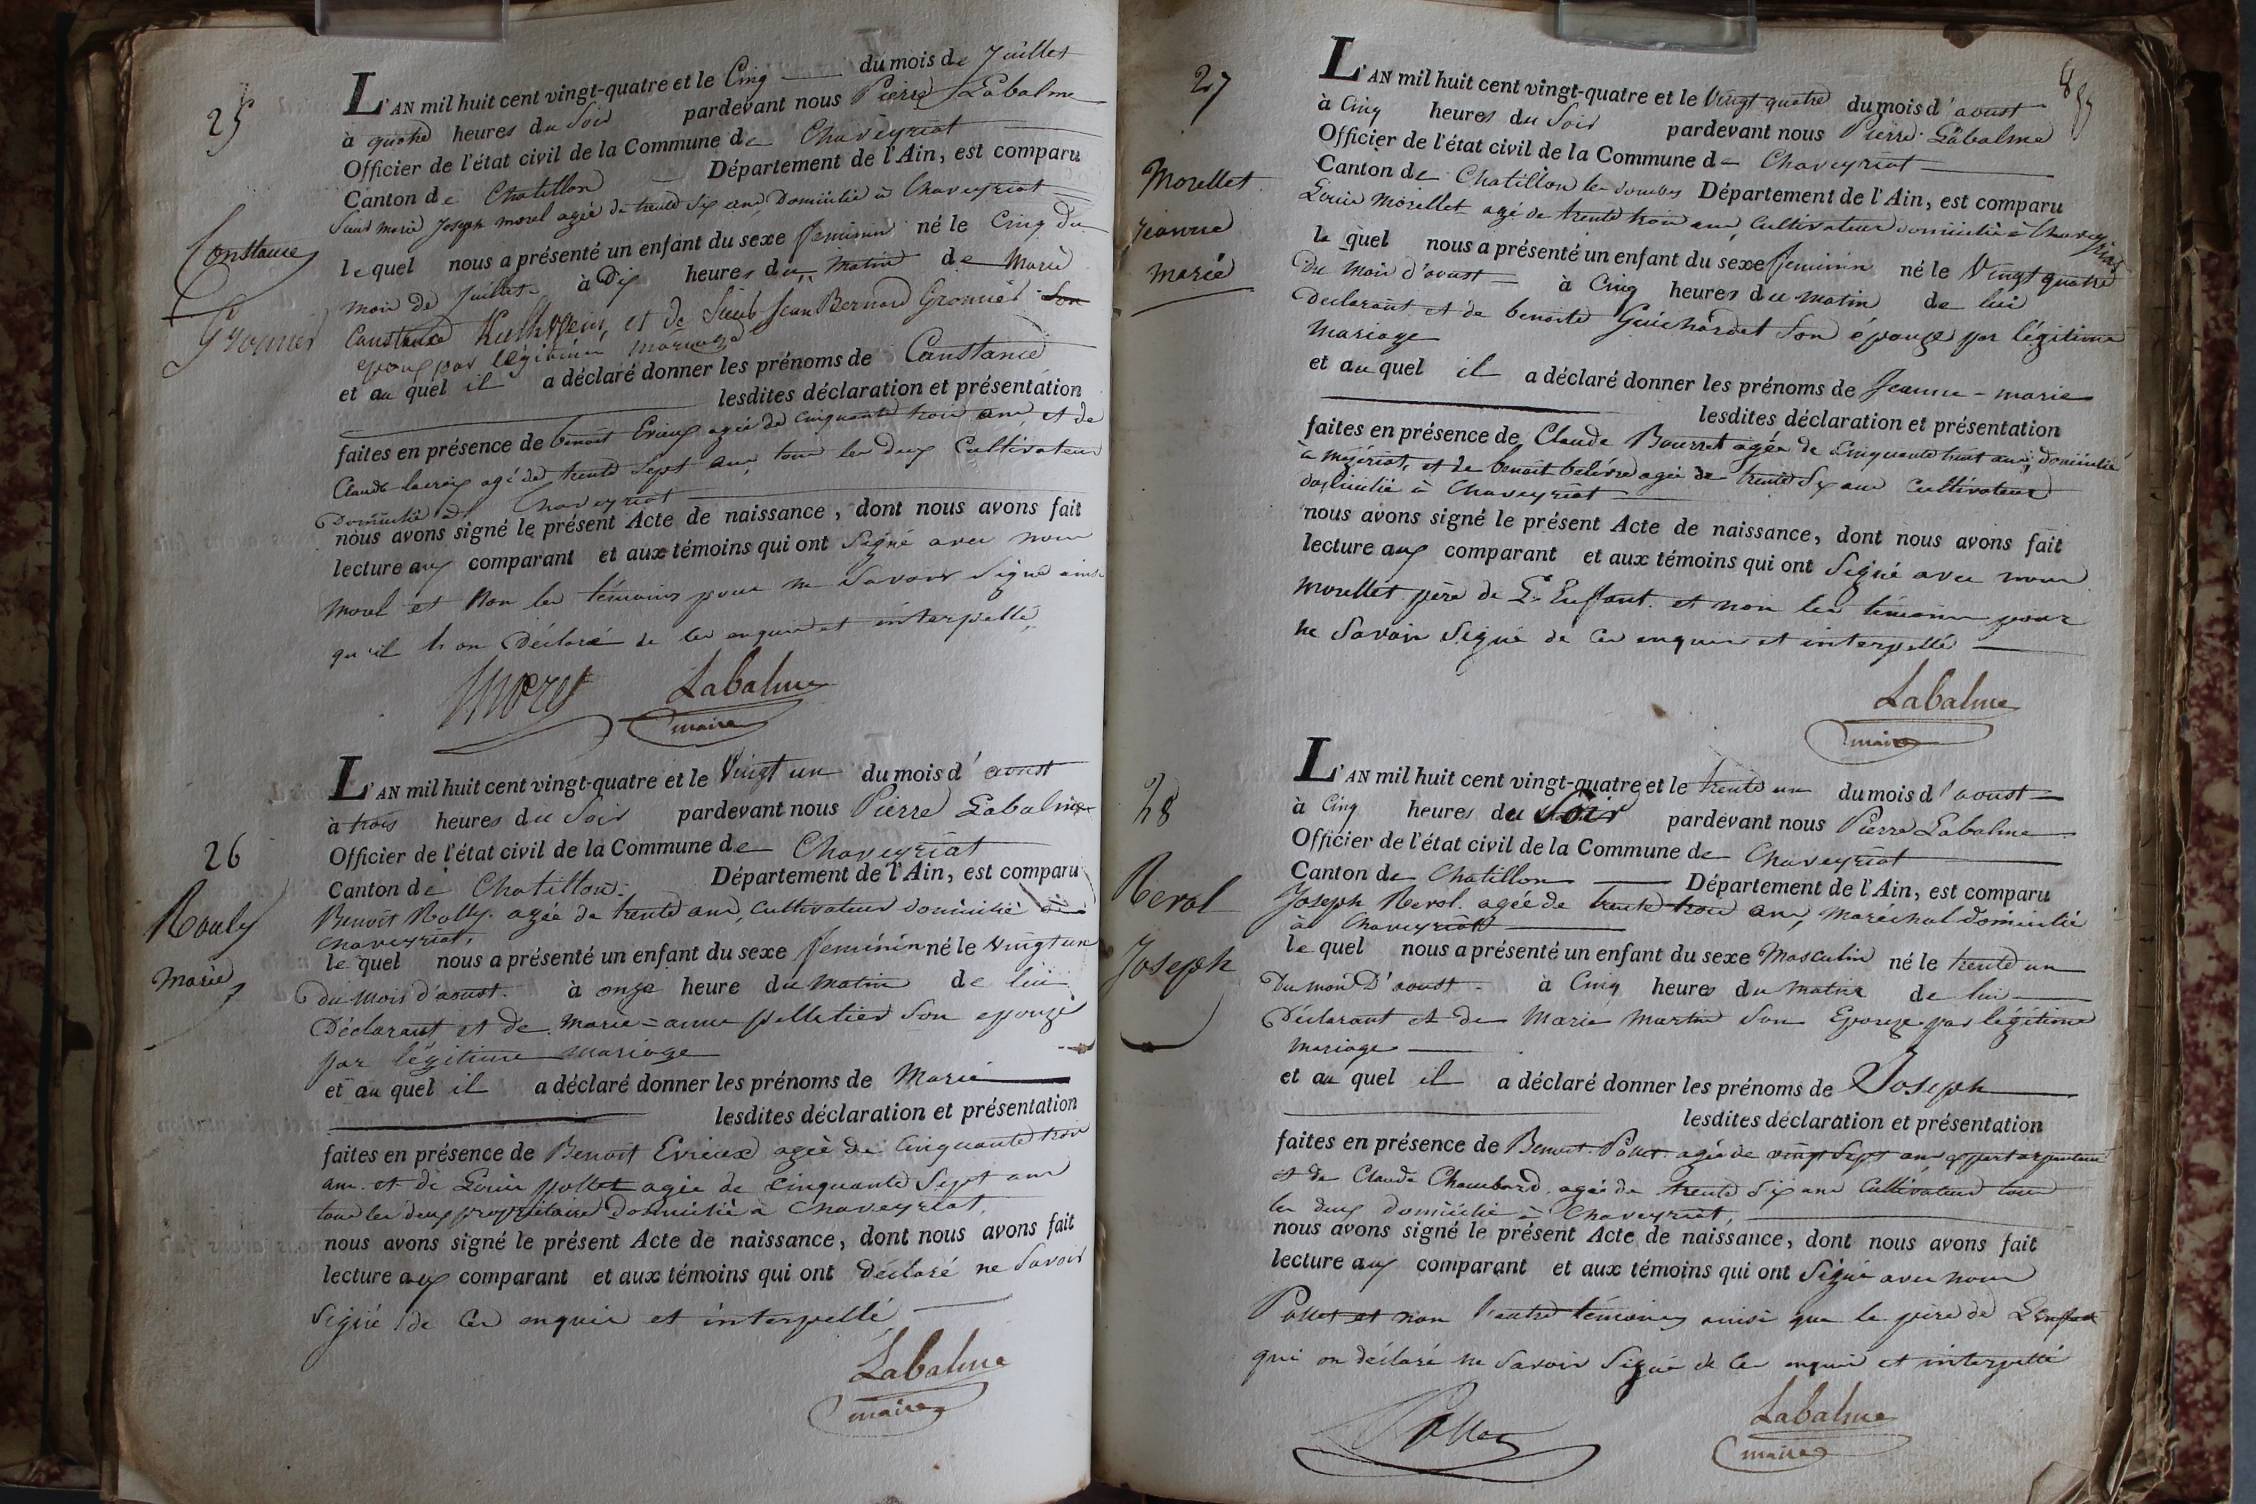 25
L'AN mil huit cent vingt-quatre et le Cinq du mois de Juillet
à quatre heures du Soir pardevant nous Pierre Labalme
Officier de l'état civil de la Commune de Chaveyriat
Canton de Chatillon Département de l'Ain, est comparu
Joseph morel agée de trente Six ans, Domicilié à Chaveyriat
Constance
Gromier
le quel nous a présenté un enfant du sexe feminin né le Cinq du
mois de Juillet à Dix heures du matin de Marie
Constance et de Jean Bernard Gromier Son
epoux par légitime mariage
et au quel il a déclaré donner les prénoms de Constance
lesdites déclaration et présentation
faites en présence de benoit Erieux agée de cinquante trois ans, et de
Claude lacroix agé de trente Sept ans, tous les deux Cultivateur
Domicilié à Chaveyriat
nous avons signé le présent Acte de naissance, dont nous avons fait
lecture aux comparant et aux témoins qui ont Signé avec nous
Morel et Non les témoins pour ne Savoir Signé ainsi
qu'il l'on Déclaré de ce enquis et interpellé
Morel Labalme
maire
26
Rouly
marie
L'AN mil huit cent vingt-quatre et le Vingt un du mois d'aoust
à trois heures du Soir pardevant nous Pierre Labalme
Officier de l'état civil de la Commune de Chaveyriat
Canton de Chatillon Département de l'Ain, est comparu
Benoit Rolly agée de trente ans, Cultivateur domicilié à
Chaveyriat,
le quel nous a présenté un enfant du sexe feminin né le vingt un
Du mois d'aoust à onze heure du matin de lui
Déclarant et de marie=anne pelletier Son epouse
par légitime mariage
et au quel il a déclaré donner les prénoms de Marie
lesdites déclaration et présentation
faites en présence de Benoit Erieux agée de Cinquante trois
ans et de Louis pollet agée de cinquante Sept ans
tous les deux proprietaire Domicilié à Chaveyriat,
nous avons signé le présent Acte de naissance, dont nous avons fait
lecture aux comparant et aux témoins qui ont déclaré ne Savoir
Signé de ce enquis et interpellé
Labalme
maire
27
Morellet
jeanne
marie
L'AN mil huit cent vingt-quatre et le Vingt quatre du mois d'aoust
à Cinq heures du Soir pardevant nous Pierre Labalme
Officier de l'état civil de la Commune de Chaveyriat
Canton de Chatillon les dombes Département de l'Ain, est comparu
Louis Morellet agé de trente trois ans, Cultivateur domicilié à Chaveyriat
le quel nous a présenté un enfant du sexe feminin né le Vingt quatre
Du mois d'aoust à Cinq heures du matin de lui
Declarant et de benoite Guichardet Son épouse par légitime
mariage
et au quel il a déclaré donner les prénoms de Jeanne-marie
lesdites déclaration et présentation
faites en présence de Claude Bourret agée de Cinquante huit ans, domicilié
à mezériat, et de benoit agée de trente Six ans Cultivateur
domicilié à Chaveyriat
nous avons signé le présent Acte de naissance, dont nous avons fait
lecture aux comparant et aux témoins qui ont Signé avec nous
Morellet père de L'Enfant et non les témoins pour
ne Savoir Signé de ce enquis et interpellé
Labalme
maire
28
Revol
Joseph
L'AN mil huit cent vingt-quatre et le trente un du mois d'aoust
à Cinq heures du Soir pardevant nous Pierre Labalme
Officier de l'état civil de la Commune de Chaveyriat
Canton de Chatillon Département de l'Ain, est comparu
Joseph Revol agée de trente trois ans, maréchal domicilié
à Chaveyriat
le quel nous a présenté un enfant du sexe Masculin né le trente un
Du mois D'aoust à Cinq heures du matin de lui
Déclarant et de Marie Martin Son Epouse par légitime
mariage
et au quel il a déclaré donner les prénoms de Joseph
lesdites déclaration et présentation
faites en présence de Benoit Pollet agée de vingt Sept ans expert arpenteur
et de Claude Chambard agée de trente Six ans Cultivateur tous
les deux domicilié à Chaveyriat,
nous avons signé le présent Acte de naissance, dont nous avons fait
lecture aux comparant et aux témoins qui ont Signé avec nous
Pollet et non l'autre témoins ainsi que le père de L'enfant
qui on déclaré ne Savoir Signé de ce enquis et interpellé
Pollet Labalme
maire